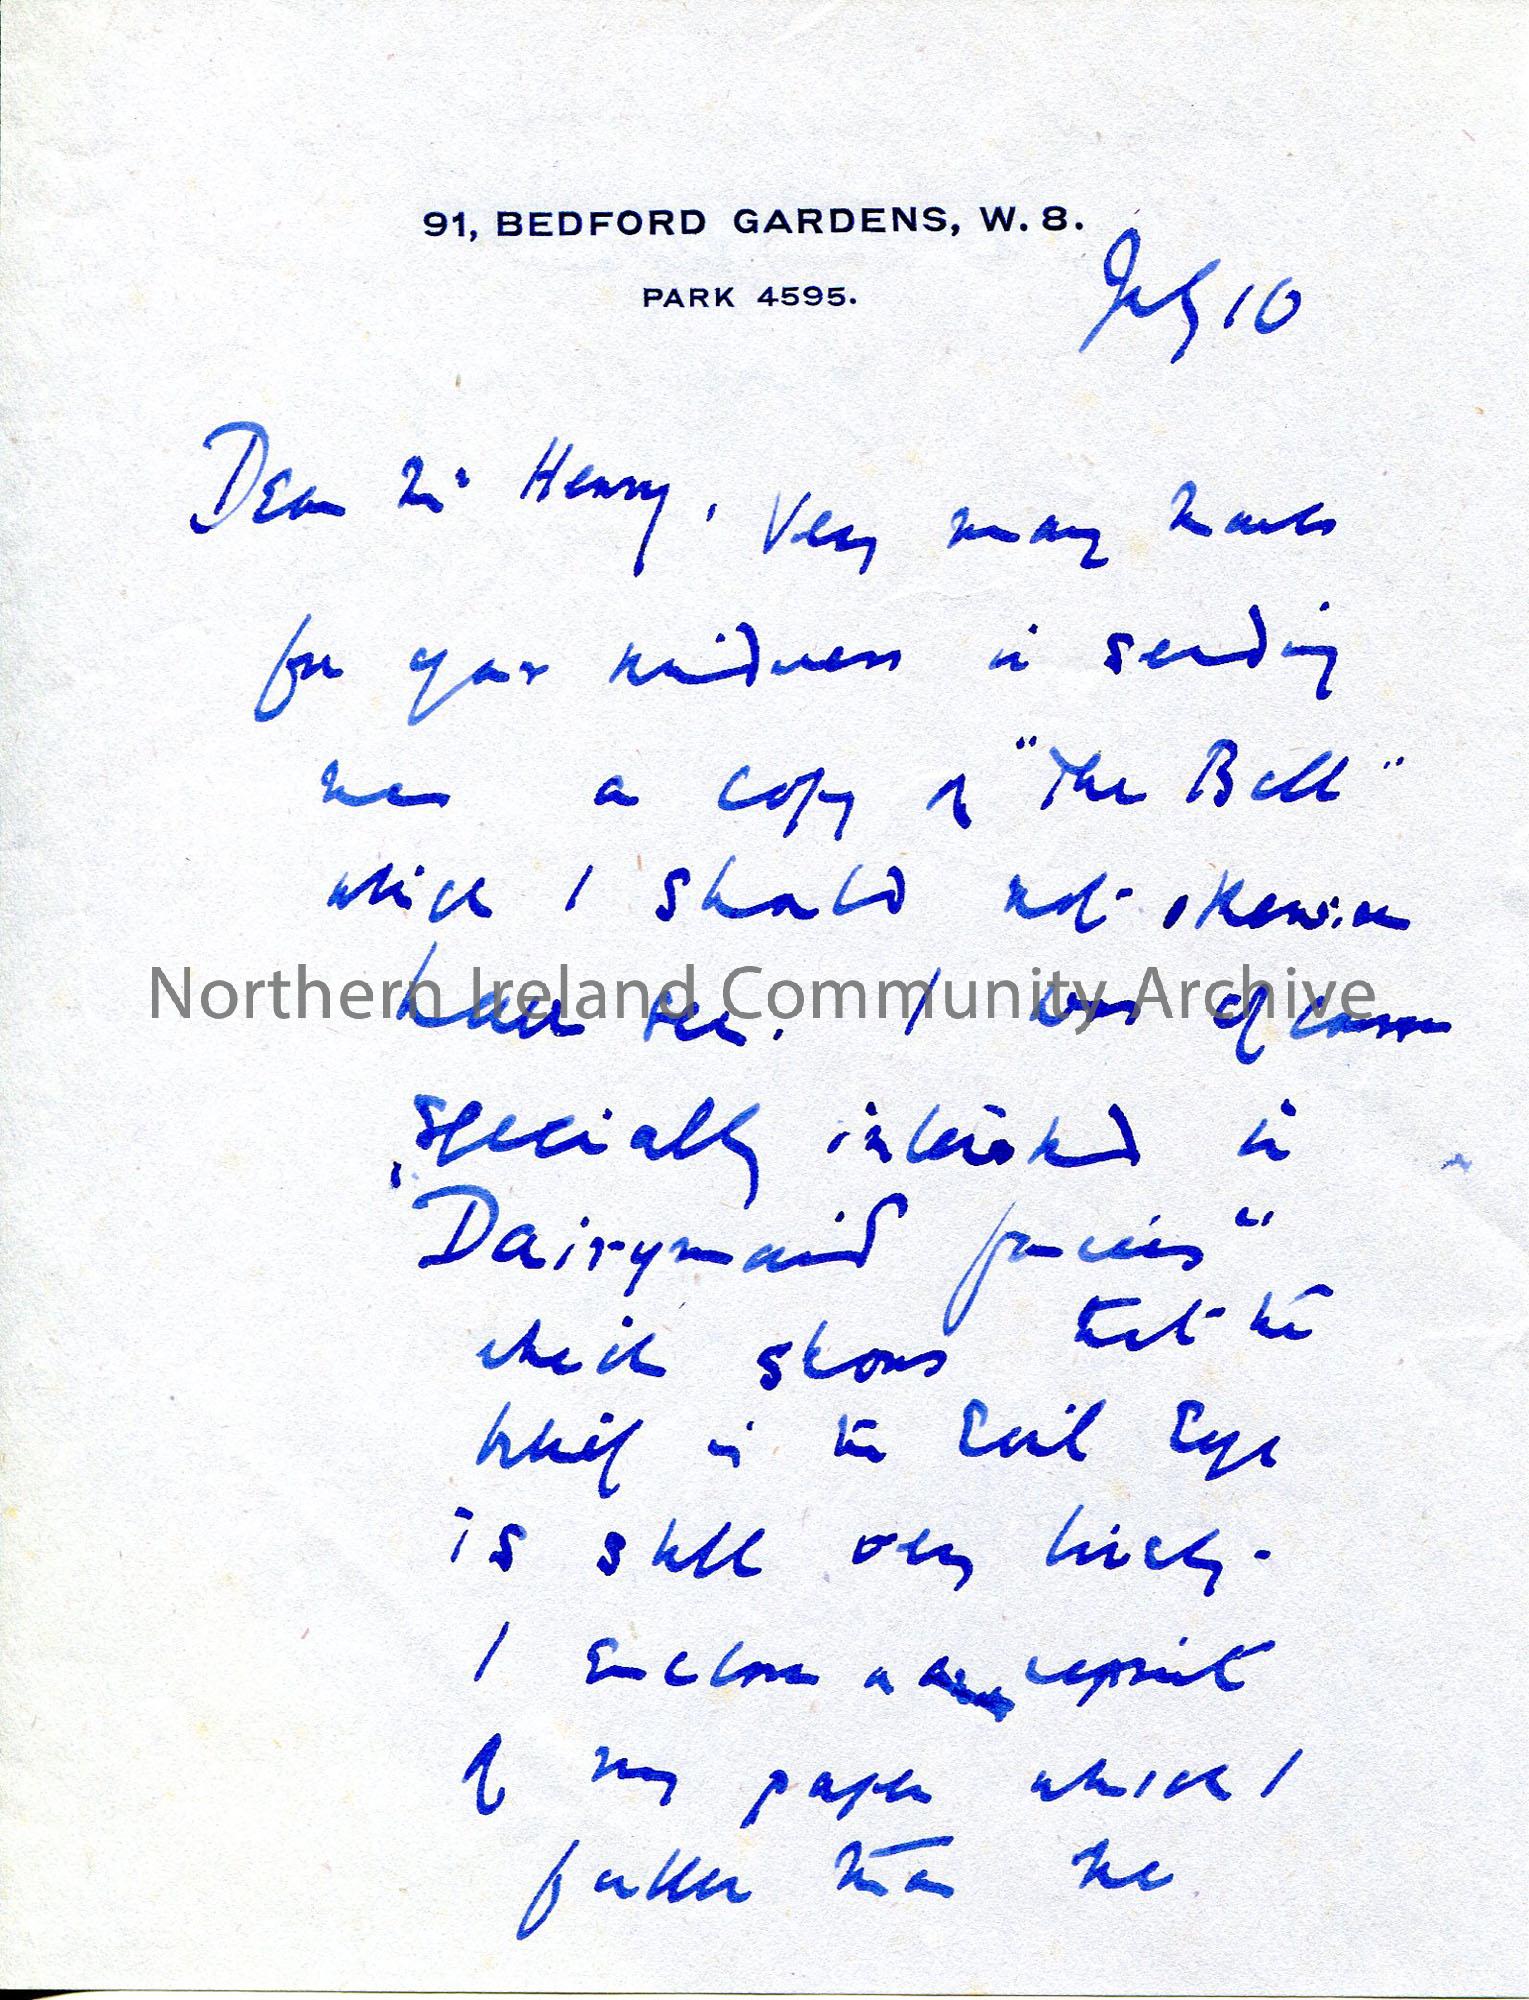 91, BEDFORD GARDENS, W. 8.
PARK 4595.
July 10
Dear Mr Henry, Very many thanks
for your kindness in sending
me a copy of "The Bell"
which I should not otherwise
have seen. I was of course
Northern Ireland Community Archive
specially interested in
"Dairymaid fancies"
which shows that the
belief in the Evil Eye
is still very lively.
I enclose a reprint
of my paper which I
fuller than the